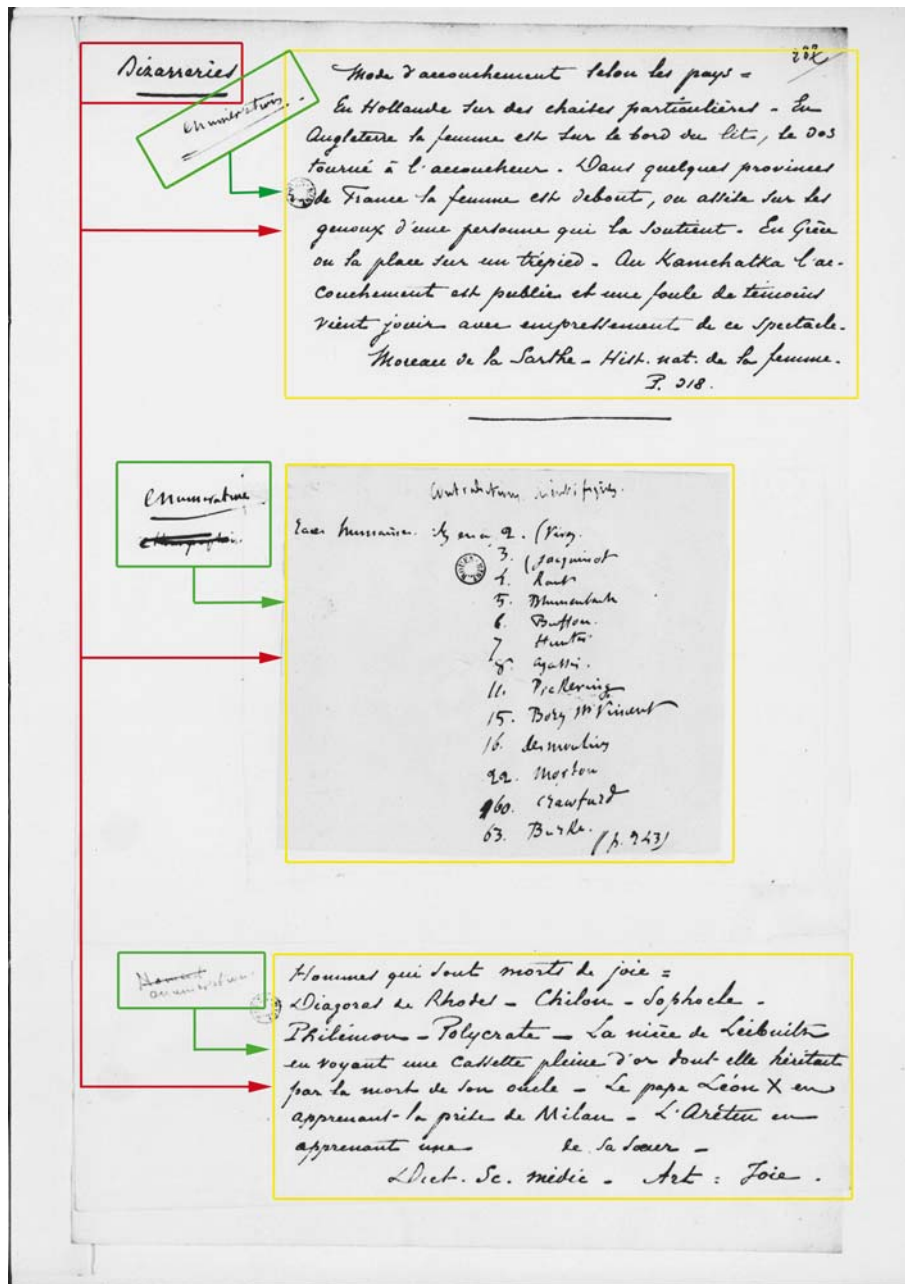 Bizarreries
enumération
Mode d'accouchement selon les pays =
En Hollande sur des chaises particulières - En
Angleterre la femme est sur le bord du lit, le dos
tourné à l'accoucheur. Dans quelques provinces
de France la femme est debout, ou assise sur les
genoux d'une personne qui la soutient. En Grèce
on la place sur un trépied. Au Kamchatka l'ac-
couchement est public et une foule de témoins
vient jouir avec empressement de ce spectacle.
Moreau de la Sarthe - Hist. nat. de la femme.
P. 218.
enumération
Contradictions scientifiques.
Races humaines. il y en a 2. (Virey.
3. (Jacquinot
4. Kant
5. Blumenbach
6. Buffon.
7 Hunter
8. Agassiz.
11. Pickering
15. Bory St Vincent
16. desmoulins
22. Morton
60. Crawfurd
63. Burke. (p. 243)
enumération
Hommes qui sont morts de joie =
Diagoras de Rhodes - Chilon - Sophocle -
Philémon - Polycrate - La nièce de Leibnitz
en voyant une cassette pleine d'or dont elle héritait
par la mort de son oncle - Le pape Léon X en
apprenant la prise de Milan - L'Arétin en
apprenant une de sa sœur -
Dict. Sc. médic - Art : Joie.